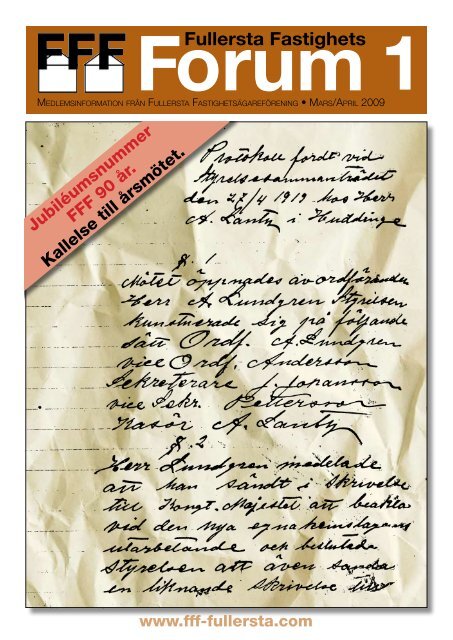 FFF Fullersta Fastighets
Forum 1
MEDLEMSINFORMATION FRÅN FULLERSTA FASTIGHETSÄGAREFÖRENING • MARS/APRIL 2009
Jubiléumsnummer
FFF 90 år.
Kallelse till årsmötet.
Protokoll fördt vid
Styrelsesammanträdet
den 27/4 1919 hos Herr
A. Lanty i Huddinge
§. 1
Mötet öppnades av ordföranden
Herr A. Lundgren Styrelsen
kunstituerade sig på följande
sätt Ordf. A. Lundgren
vice Ordf. Andersson
Sekreterare J. Johansson
vice Sekr. Pettersson
Kasör A. Lanty
§. 2
Herr Lundgren medelade
att han sändt i skrivelse
till Kongl. Majestet att beakta
vid den nya egnahemslagens
utarbetande och beslutade
Styrelsen att även sända
en liknande skrivelse till
www.fff-fullersta.com